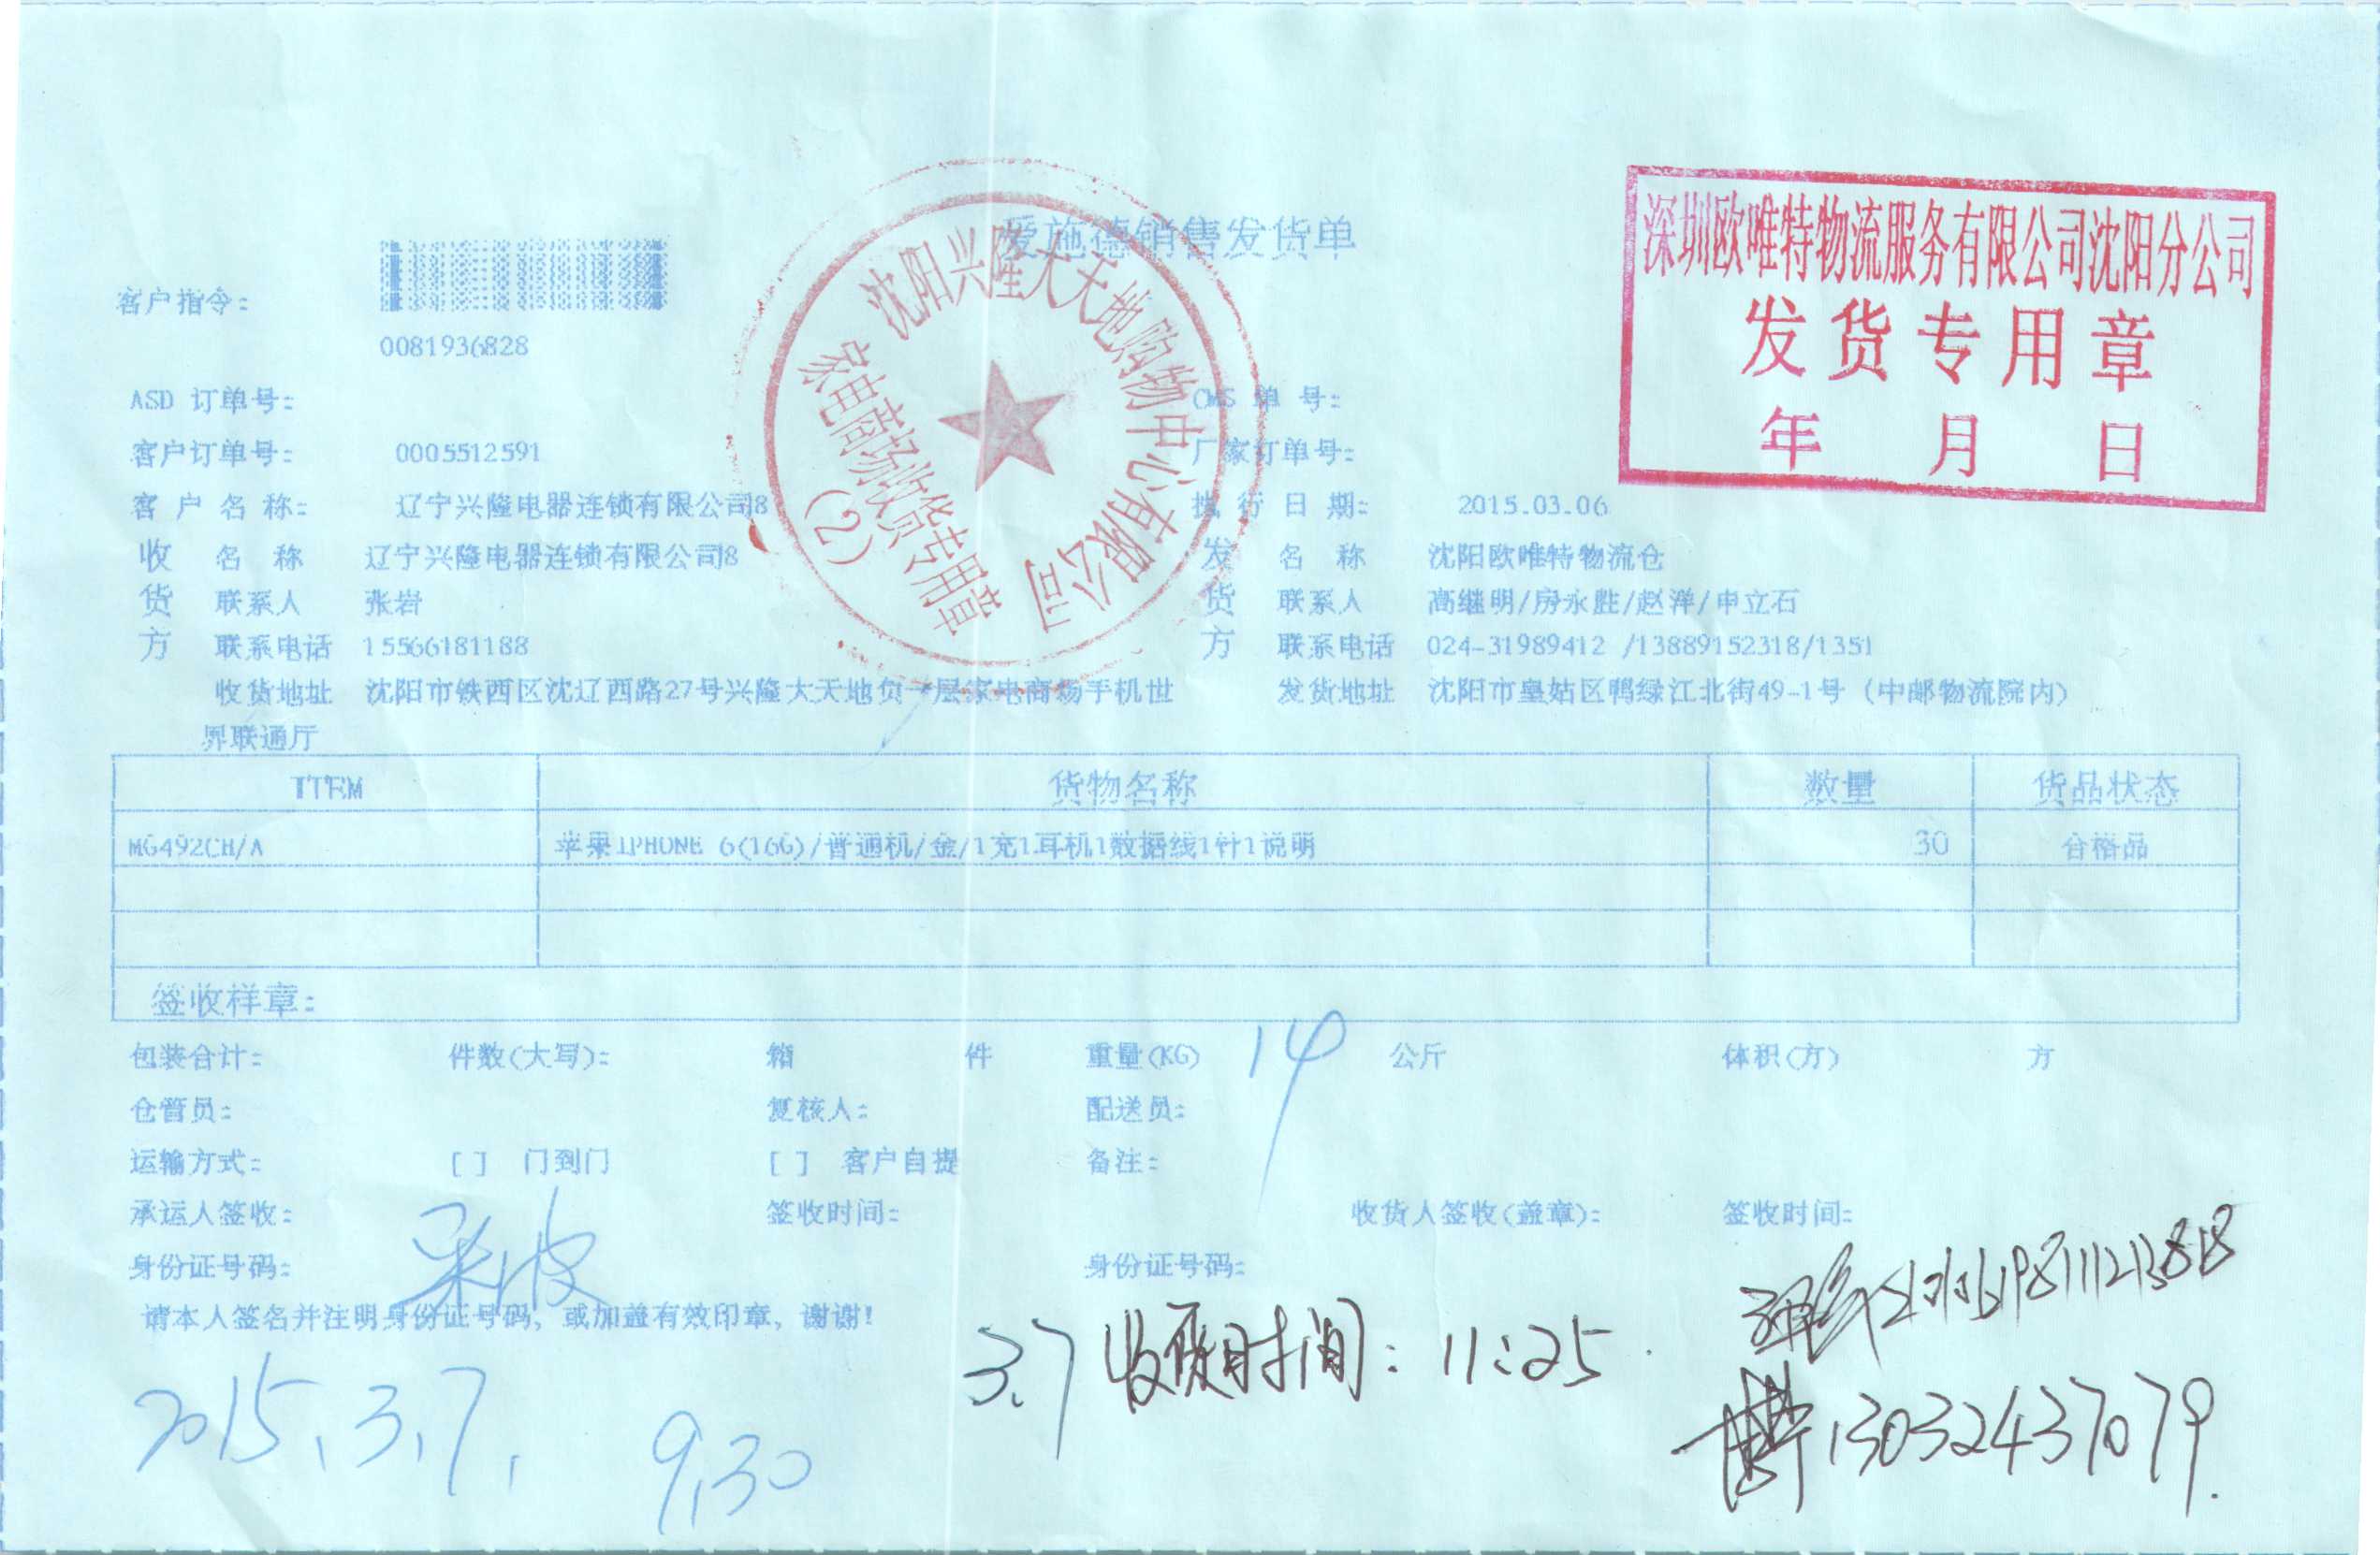 爱施德销售发货单
深圳欧唯特物流服务有限公司沈阳分公司
发货专用章
年 月 日
沈阳兴隆大天地购物中心有限公司
家电商场收货专用章
(2)
客户指令:
0081936828
ASD 订单号: CMS 单 号:
客户订单号: 0005512591 厂家订单号:
客 户 名 称: 辽宁兴隆电器连锁有限公司8 执 行 日 期: 2015.03.06
收货方 名 称 辽宁兴隆电器连锁有限公司8 发货方 名 称 沈阳欧唯特物流仓
联系人 张岩 联系人 高继明/房永胜/赵洋/申立石
联系电话 15566181188 联系电话 024-31989412 /13889152318/1351
收货地址 沈阳市铁西区沈辽西路27号兴隆大天地负一层家电商场手机世 发货地址 沈阳市皇姑区鸭绿江北街49-1号 (中邮物流院内)
界联通厅
ITEM 货物名称 数量 货品状态
MG492CH/A 苹果IPHONE 6(16G)/普通机/金/1充1耳机1数据线1针1说明 30 合格品
签收样章:
包装合计: 件数(大写): 箱 件 重量(KG) 14 公斤 体积(方) 方
仓管员: 复核人: 配送员:
运输方式: [ ] 门到门 [ ] 客户自提 备注:
承运人签收: 签收时间: 收货人签收(盖章): 签收时间:
身份证号码: 身份证号码:
请本人签名并注明身份证号码, 或加盖有效印章, 谢谢!
3.7 收货时间: 11:25
13032437079.
2015.3.7. 9.30